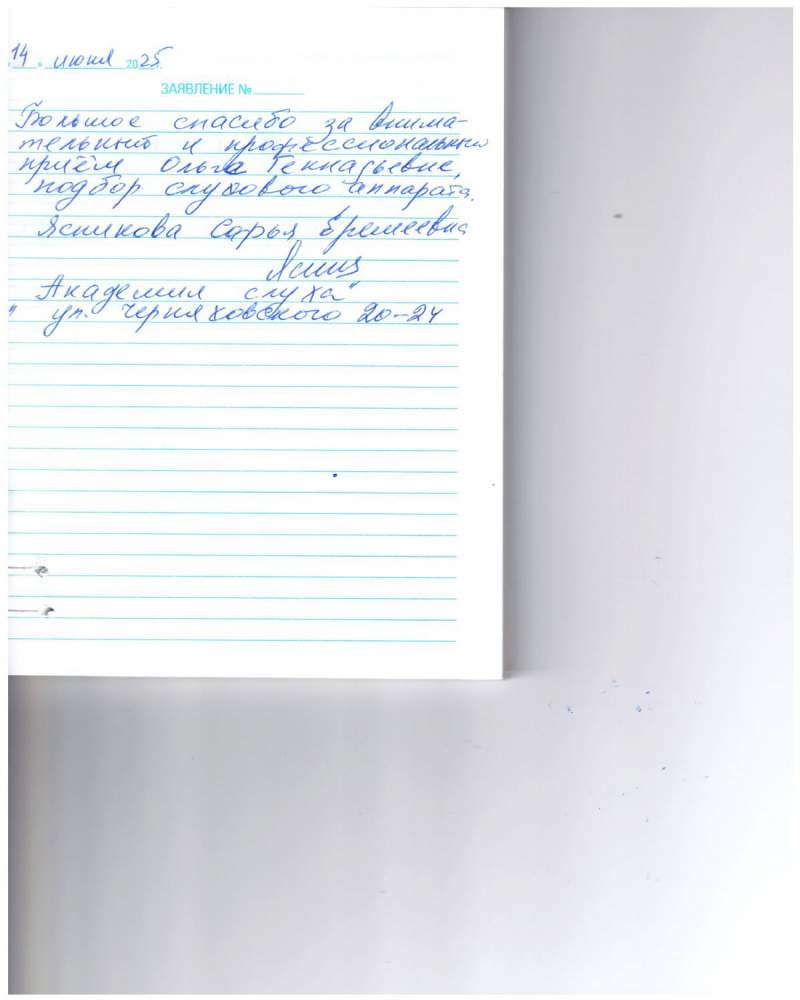 14 " июля 2025г.
ЗАЯВЛЕНИЕ №
Большое спасибо за внима-
тельный и профессиональный
приём Ольга Геннадьевне,
подбор слухового аппарата.
Ясникова Сарья Еремеевна
Академия слуха"
" ул. Черняховского 20-24